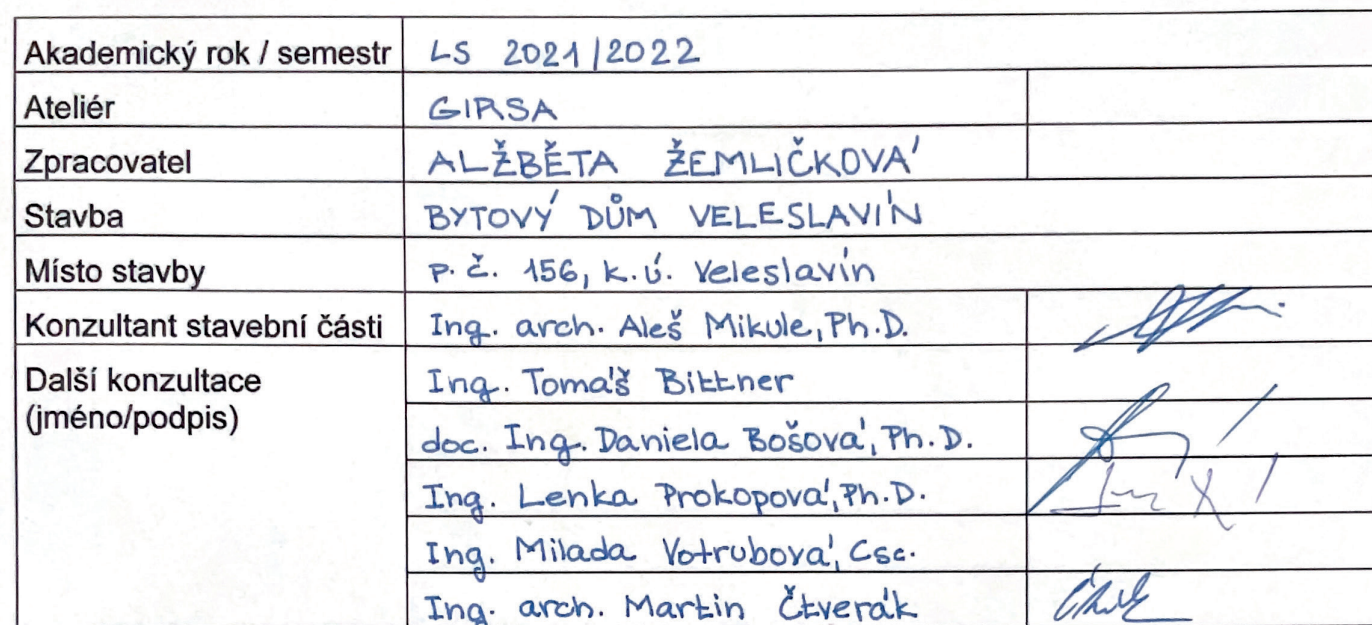 Akademický rok / semestr LS 2021/2022
Ateliér GIRSA
Zpracovatel ALŽBĚTA ŽEMLIČKOVÁ
Stavba BYTOVÝ DŮM VELESLAVÍN
Místo stavby P. Č. 156, k.ú. Veleslavín
Konzultant stavební části Ing. arch. Aleš Mikule, Ph.D.
Další konzultace Ing. Tomáš Bittner
(jméno/podpis)
doc. Ing. Daniela Bošová, Ph.D.
Ing. Lenka Prokopová, Ph.D.
Ing. Milada Votrubová, Csc.
Ing. arch. Martin Čtverák